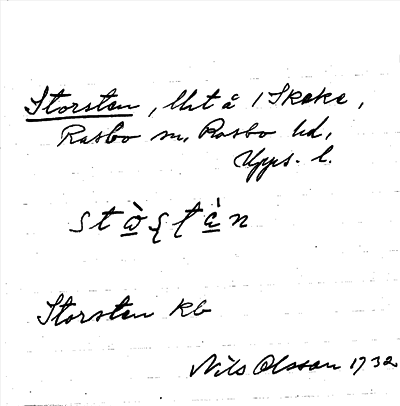 Storsten, Utt å / Skeke,
Rasbo sn, Rasbo hd,
Upps. l.
Storsten kb
Nils Olsson 1932